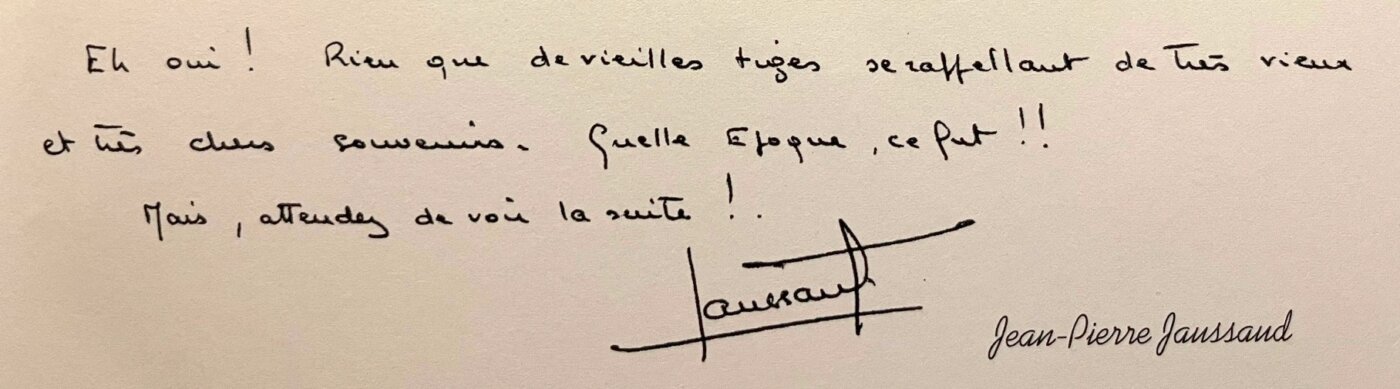 Eh oui ! Rien que de vieilles tiges se rappellant de très vieux
et très chers souvenirs. Quelle Epoque, ce fut !!
Mais, attendez de voir la suite !.
Jaussaud
Jean-Pierre Jaussaud